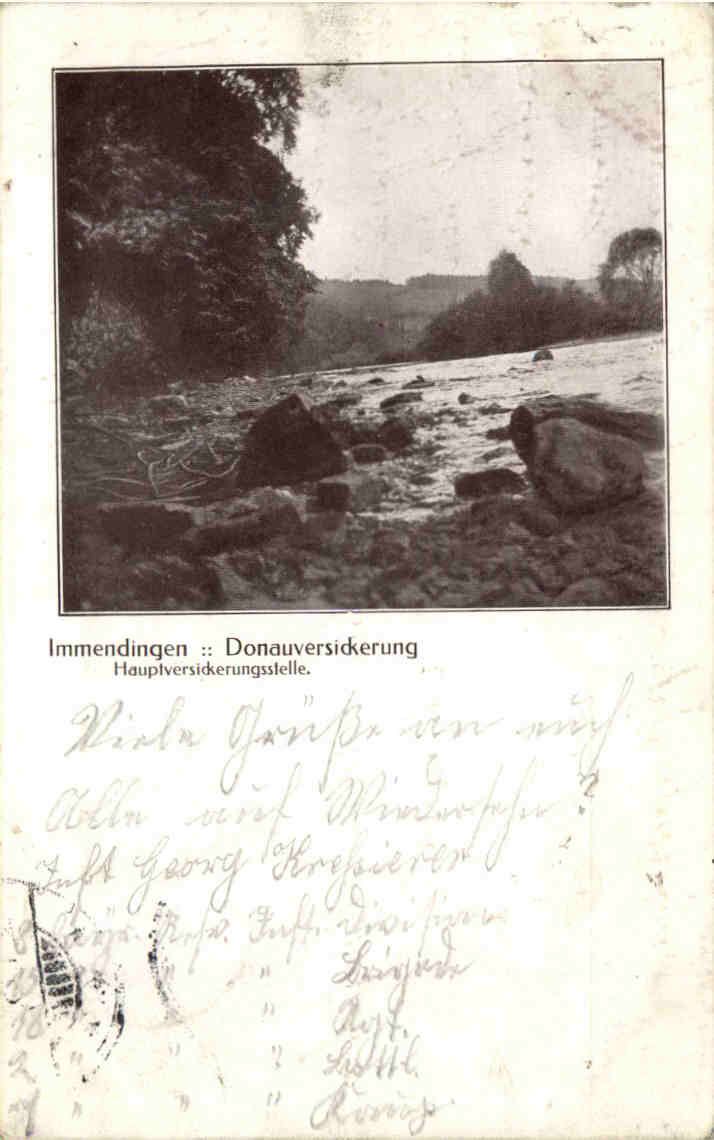 Immendingen :: Donauversickerung
Hauptversickerungsstelle.
Viele Grüße an euch
Alle auf Wiedersehn ?
Inft Georg
8 Bayr. Resv. Inft. Division
" " Brigade
18 " " Rgt.
2 " " " Battl.
" " " Komp